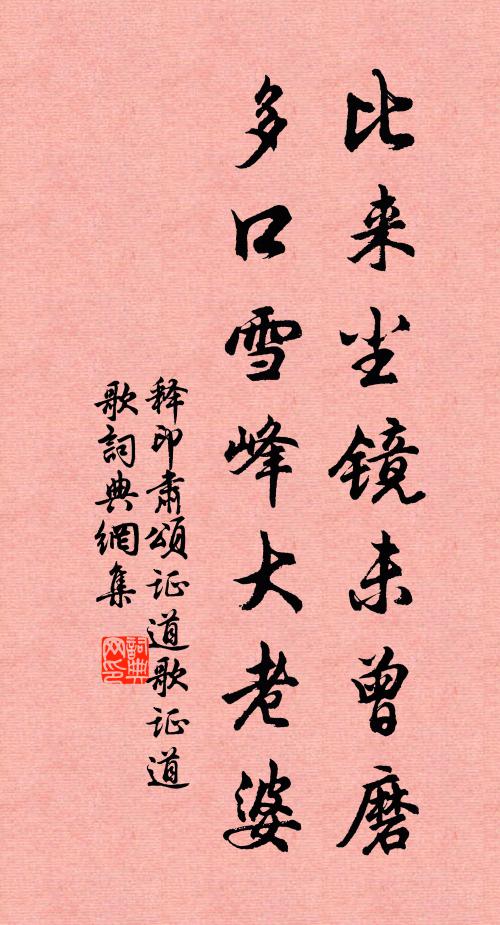 比来尘镜未曾磨
多口雪峰大老婆
释印肃颂证道歌证道
歌詞典網集
詞典網印